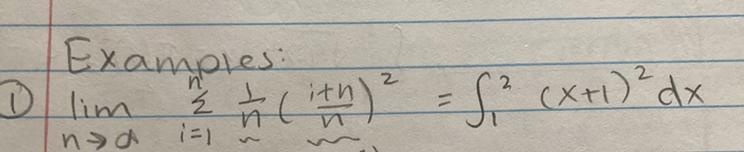 Examples:
① lim n→∞ n Σ i=1 1/n ( i+n/n )² = ∫₁² (x+1)² dx